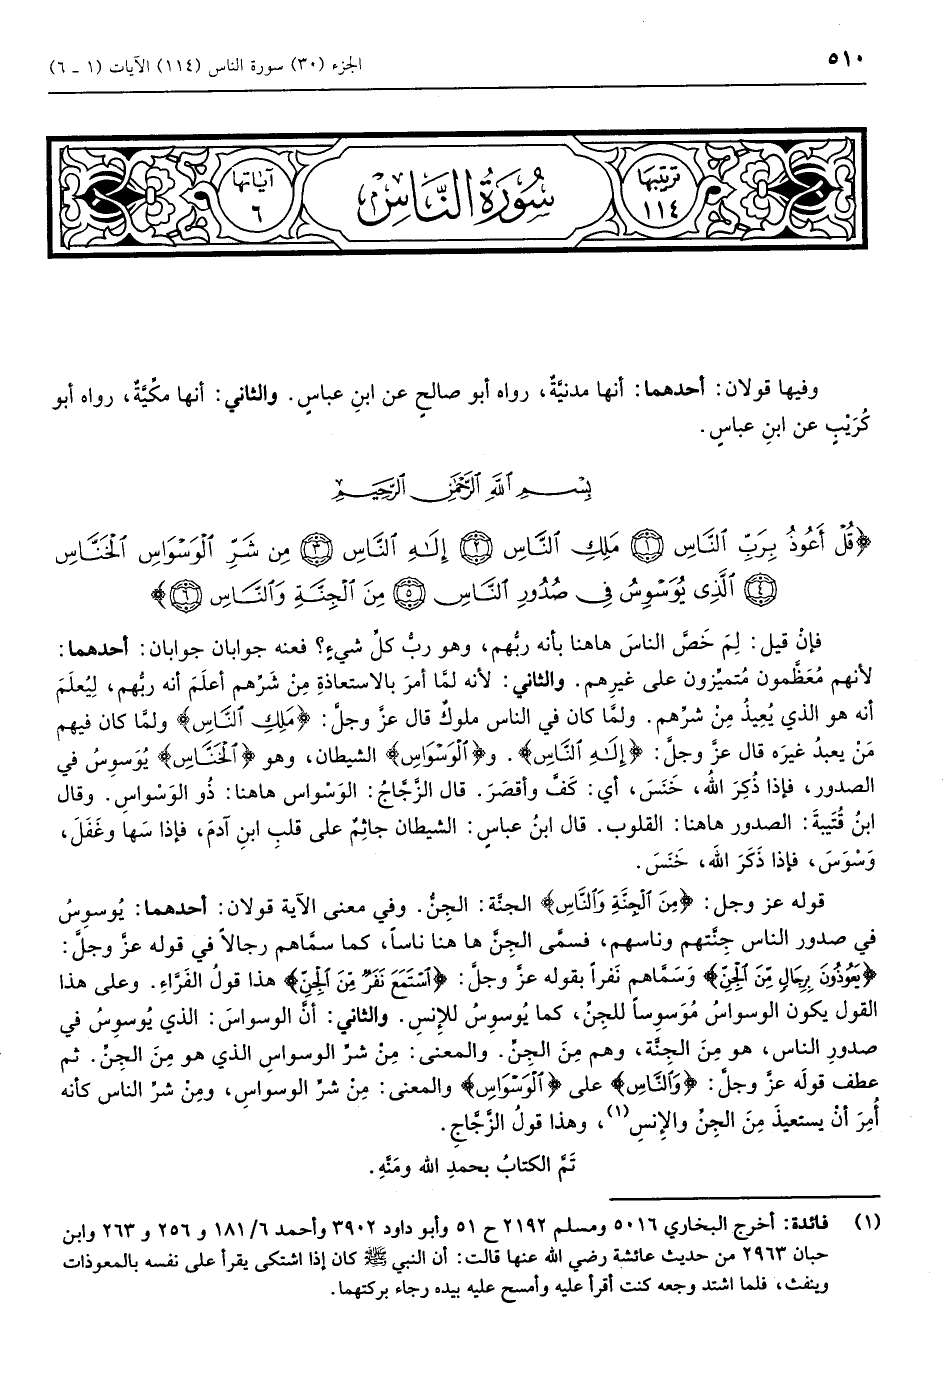 ٥١٠
الجزء (٣٠) سورة الناس (١١٤) الآيات (١ ـ ٦)
ترتيبها ١١٤
سُورَةُ النَّاسِ
آياتها ٦
وفيها قولان: أحدهما: أنها مدنيَّةٌ، رواه أبو صالحٍ عن ابنِ عباسٍ. والثاني: أنها مكيَّةٌ، رواه أبو
كُرَيْبٍ عن ابنِ عباسٍ.
بِسْمِ اللَّهِ الرَّحْمَٰنِ الرَّحِيمِ
﴿قُلْ أَعُوذُ بِرَبِّ النَّاسِ ١ مَلِكِ النَّاسِ ٢ إِلَٰهِ النَّاسِ ٣ مِن شَرِّ الْوَسْوَاسِ الْخَنَّاسِ
٤ الَّذِى يُوَسْوِسُ فِى صُدُورِ النَّاسِ ٥ مِنَ الْجِنَّةِ وَالنَّاسِ ٦﴾
فإنْ قيل: لِمَ خَصَّ الناسَ هاهنا بأنه ربُّهم، وهو ربُّ كلِّ شيءٍ؟ فعنه جوابان جوابان: أحدهما:
لأنهم مُعَظَّمون مُتميِّزون على غيرِهم. والثاني: لأنه لمَّا أمرَ بالاستعاذةِ مِنْ شَرِّهم أعلَمَ أنه ربُّهم، لِيُعلَمَ
أنه هو الذي يُعِيذُ مِنْ شرِّهم. ولمَّا كان في الناس ملوكٌ قال عزَّ وجلَّ: ﴿مَلِكِ النَّاسِ﴾ ولمَّا كان فيهم
مَنْ يعبدُ غيرَه قال عزَّ وجلَّ: ﴿إِلَٰهِ النَّاسِ﴾. و﴿الْوَسْوَاسِ﴾ الشيطان، وهو ﴿الْخَنَّاسِ﴾ يُوَسوِسُ في
الصدور، فإذا ذُكِرَ اللهُ، خَنَسَ، أي: كَفَّ وأقصَرَ. قال الزَّجَّاجُ: الوَسْواس هاهنا: ذُو الوَسْواسِ. وقال
ابنُ قُتَيبةَ: الصدور هاهنا: القلوب. قال ابنُ عباسٍ: الشيطان جاثِمٌ على قلبِ ابنِ آدمَ، فإذا سَها وغَفَلَ،
وَسْوَسَ، فإذا ذَكَرَ اللهَ، خَنَسَ.
قوله عز وجل: ﴿مِنَ الْجِنَّةِ وَالنَّاسِ﴾ الجنَّة: الجنُّ. وفي معنى الآية قولان: أحدهما: يُوسوِسُ
في صدور الناس جِنَّتهم وناسهم، فسمَّى الجنَّ ها هنا ناساً، كما سمَّاهم رجالاً في قوله عزَّ وجلَّ:
﴿يَعُوذُونَ بِرِجَالٍ مِّنَ الْجِنِّ﴾ وَسَمَّاهم نَفراً بقوله عزَّ وجلَّ: ﴿اسْتَمَعَ نَفَرٌ مِّنَ الْجِنِّ﴾ هذا قولُ الفَرَّاءِ. وعلى هذا
القول يكون الوسواسُ مُوَسوِساً للجنِّ، كما يُوسوِسُ للإنسِ. والثاني: أنَّ الوسواسَ: الذي يُوسوِسُ في
صدورِ الناس، هو مِنَ الجِنَّة، وهم مِنَ الجنِّ. والمعنى: مِنْ شرِّ الوسواسِ الذي هو مِنَ الجنِّ. ثم
عطف قولَه عزَّ وجلَّ: ﴿وَالنَّاسِ﴾ على ﴿الْوَسْوَاسِ﴾ والمعنى: مِنْ شرِّ الوسواسِ، ومِنْ شرِّ الناس كأنه
أُمِرَ أنْ يستعيذَ مِنَ الجنِّ والإنسِ(١)، وهذا قولُ الزَّجَّاجِ.
تَمَّ الكتابُ بحمدِ الله ومَنِّهِ.
(١) فائدة: أخرج البخاري ٥٠١٦ ومسلم ٢١٩٢ ح ٥١ وأبو داود ٣٩٠٢ وأحمد ١٨١/٦ و ٢٥٦ و ٢٦٣ وابن
حبان ٢٩٦٣ من حديث عائشة رضي الله عنها قالت: أن النبي ﷺ كان إذا اشتكى يقرأ على نفسه بالمعوذات
وينفث، فلما اشتد وجعه كنت أقرأ عليه وأمسح عليه بيده رجاء بركتهما.